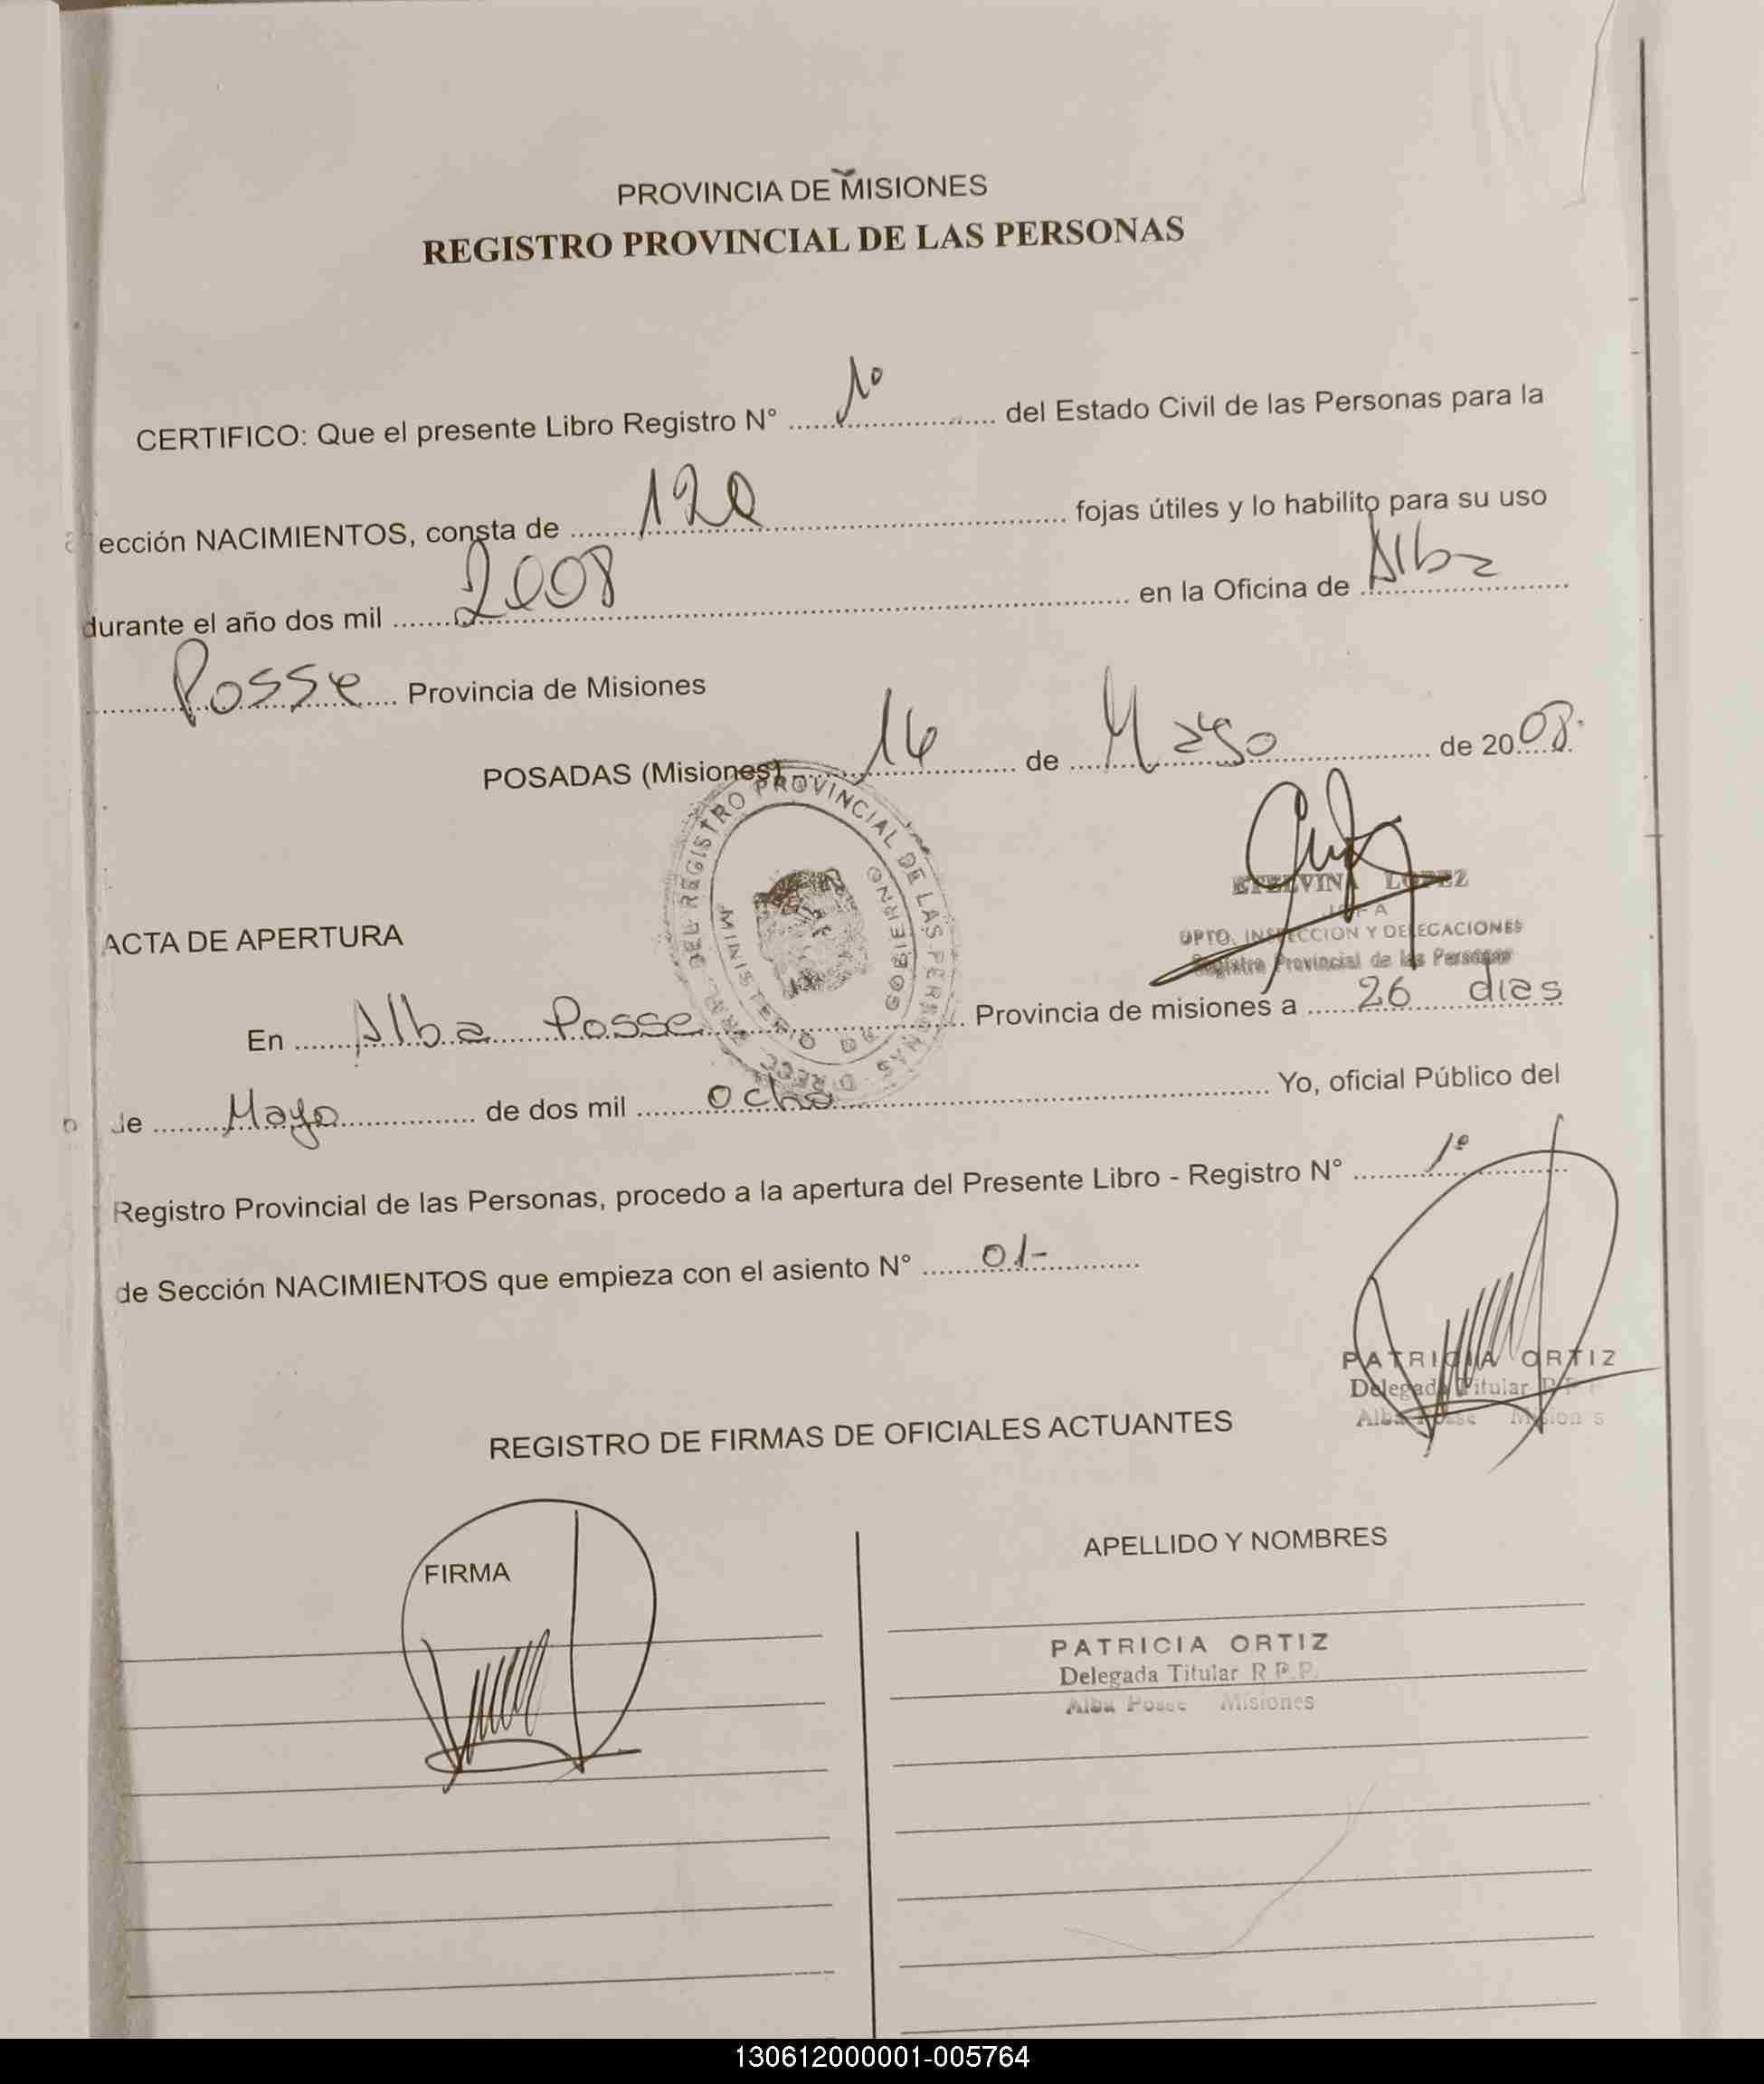 PROVINCIA DE MISIONES
REGISTRO PROVINCIAL DE LAS PERSONAS
CERTIFICO: Que el presente Libro Registro N° 1° del Estado Civil de las Personas para la
ección NACIMIENTOS, consta de 120 fojas útiles y lo habilito para su uso
durante el año dos mil 2008 en la Oficina de Alba
Posse Provincia de Misiones
POSADAS (Misiones) 16 de Mayo de 2008.
DEL REGISTRO PROVINCIAL DE LAS PERSONAS
MINISTERIO DE GOBIERNO
ETELVINA LOPEZ
JEFA
DPTO. INSPECCION Y DELEGACIONES
Registro Provincial de las Personas
ACTA DE APERTURA
En Alba Posse Provincia de misiones a 26 dias
de Mayo de dos mil ocho Yo, oficial Público del
Registro Provincial de las Personas, procedo a la apertura del Presente Libro - Registro N° 1°
de Sección NACIMIENTOS que empieza con el asiento N° 01-
PATRICIA ORTIZ
Delegada Titular R.P.P.
Alba Posse Misiones
REGISTRO DE FIRMAS DE OFICIALES ACTUANTES
FIRMA
APELLIDO Y NOMBRES
PATRICIA ORTIZ
Delegada Titular R.P.P.
Alba Posse Misiones
130612000001-005764